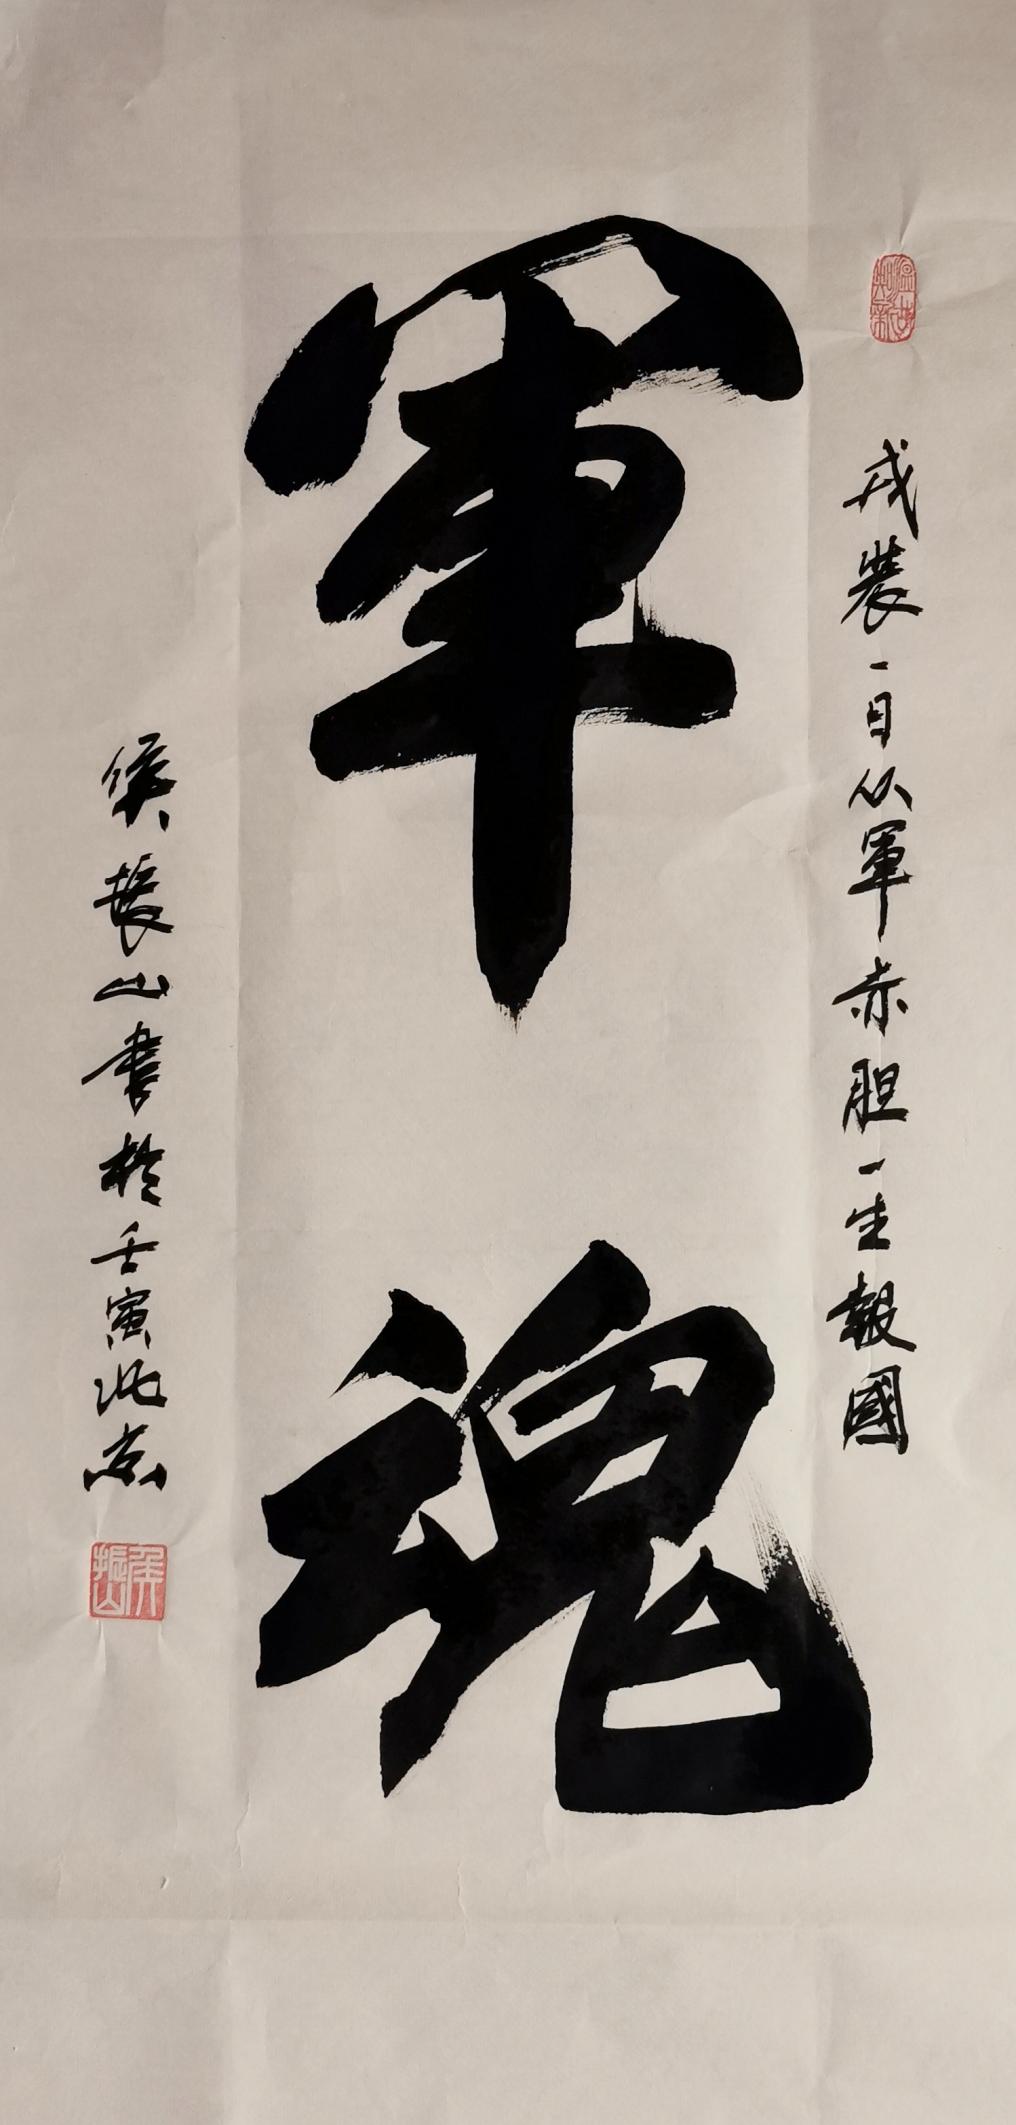 戎装一日从軍赤胆一生報國
軍魂
侯振山書於壬寅北京
侯振山